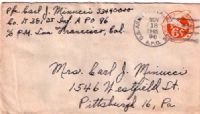 Pfc. Carl J. Minucci 33490040
Co. D 35, 25 Inf A PO 96
℅ P.M. San Francisco, Cal.
NOV
18
1945
A.P.O.
6¢
Mrs. Carl J. Minucci
1546 Westfield St.
Pittsburgh 16, Pa